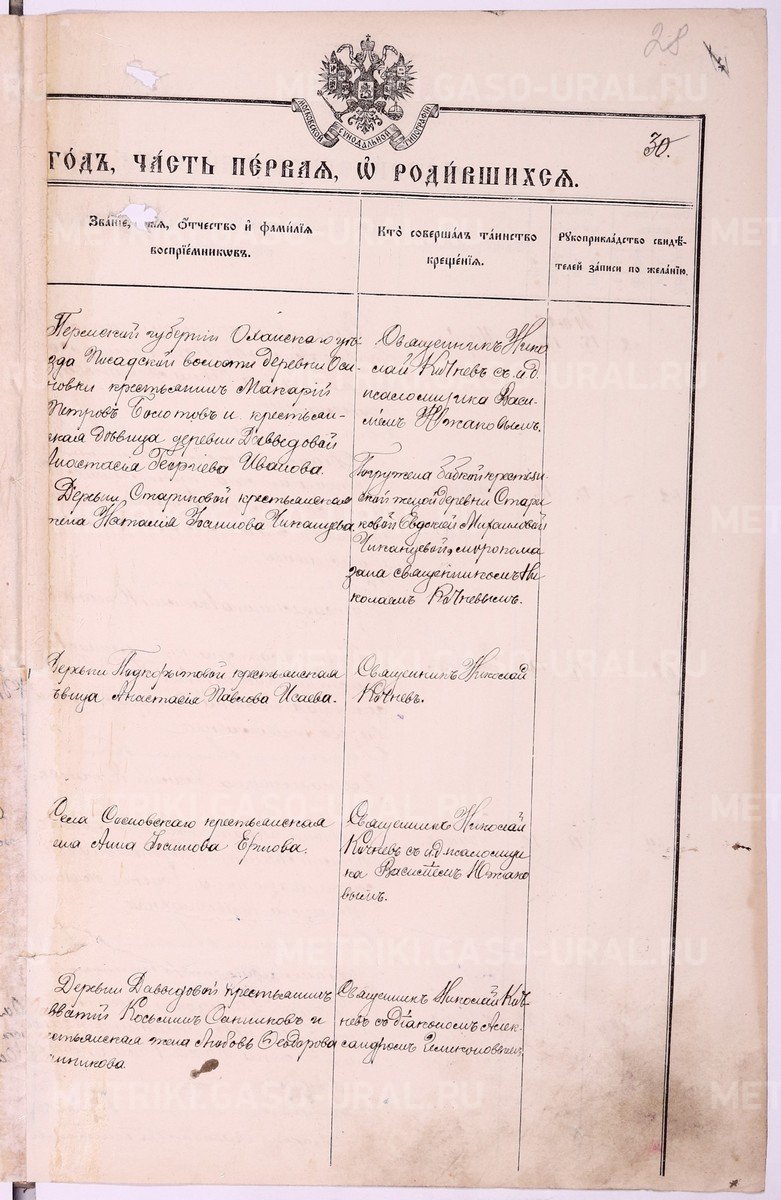 28
30.
МОСКОВСКОЙ СѴНОДАЛЬНОЙ ТИПОГРАФІИ
ГО́ДЪ, ЧА́СТЬ ПЕ́РВАЯ, Ѡ҆ РОДИ́ВШИХСЯ.
Зва́нїе, и҆́мя, ѻ҆́тчество и҆ фами́лїя
воспрїе́мниковъ.
Кто̀ соверша́лъ та́инство
креще́нїя.
Рꙋкоприкла́дство свидѣ́-
телей за́писи по жела́нїю.
Пермской губерніи Оханскаго уѣ-
зда Посадской волости деревни Оси
новки крестьянинъ Макарій
Петровъ Болотовъ и крестьян-
ская дѣвица деревни Давыдовой
Анастасія Георгіева Иванова.
Священникъ Нико
лай Кочневъ съ и.д.
псаломщика Васи-
ліемъ Южаковымъ.
Деревни Стариковой крестьянская
жена Наталія Іоаннова Чиканцева
Погружена бабкой крестьян-
ской женой деревни Стари
ковой Евдокіей Михаиловой
Чиканцевой, миропома
зана священникомъ Ни-
колаемъ Кочневымъ.
Деревни Подкорытовой крестьянская
ѣвица Анастасія Павлова Исаева.
Священникъ Николай
Кочневъ.
Села Сосновскаго крестьянская
ена Анна Іоаннова Ершова.
Священникъ Николай
Кочневъ съ и.д. псаломщи
ка Василіемъ Южако
вымъ.
Деревни Давыдовой крестьянинъ
вватій Косьминъ Санниковъ и
стьянская жена Любовь Ѳеодорова
нникова
Священникъ Николай Коч-
невъ съ діакономъ Алек-
сандромъ
METRIKI.GASO-URAL.RU